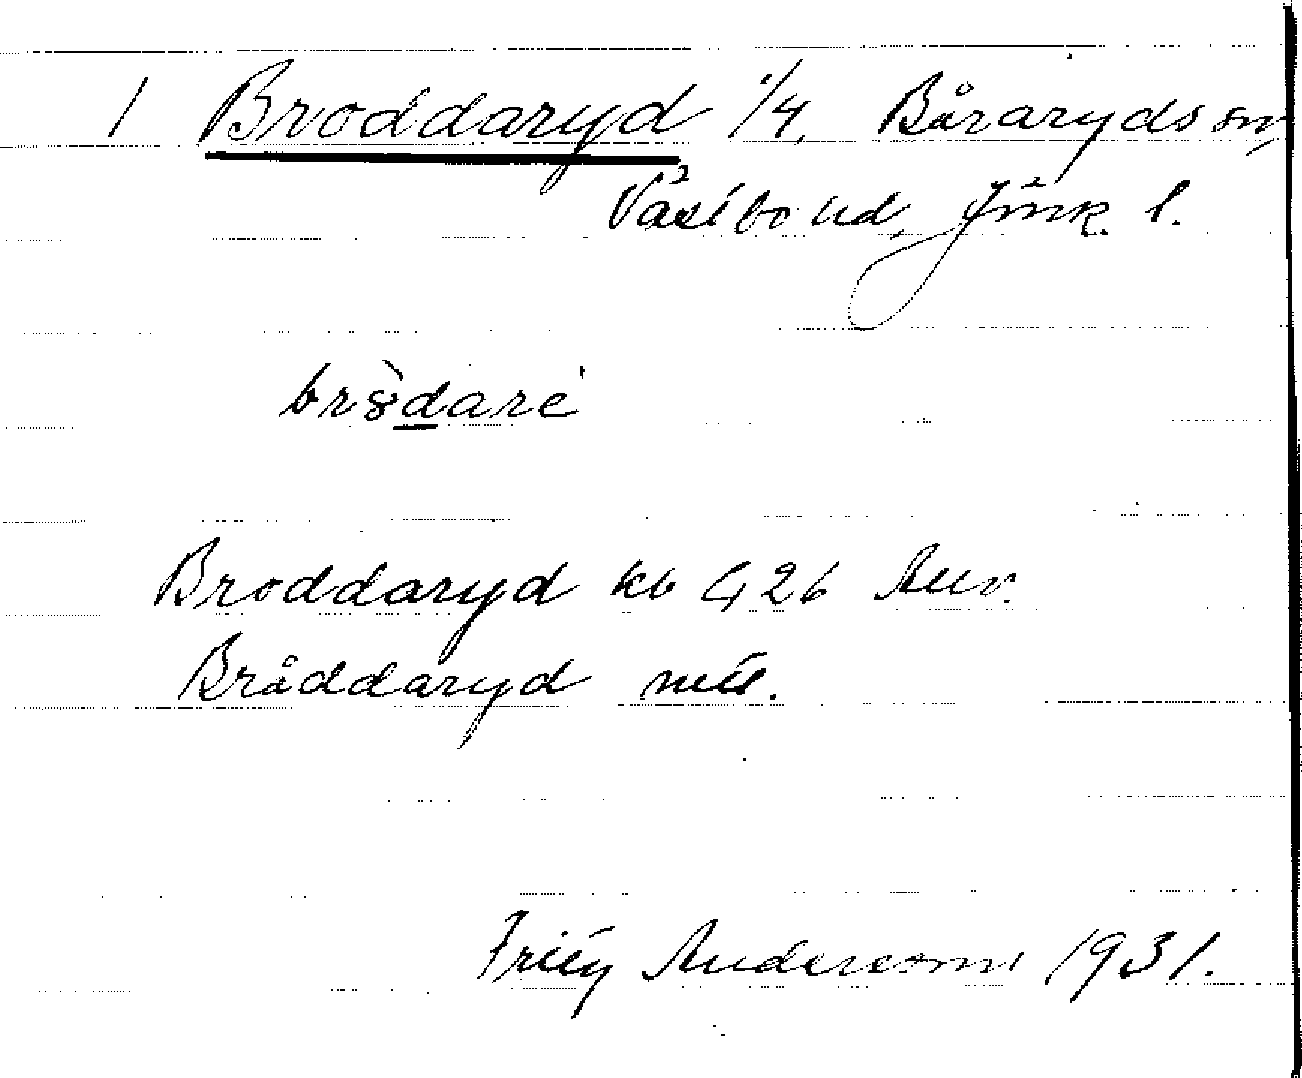 1 Broddaryd 1/4, Båraryds sn,
Västbo hd, Jönk. l.
bròdaré
Broddaryd kb G 26 Auv.
Bråddaryd mtl.
Anderson 1931.